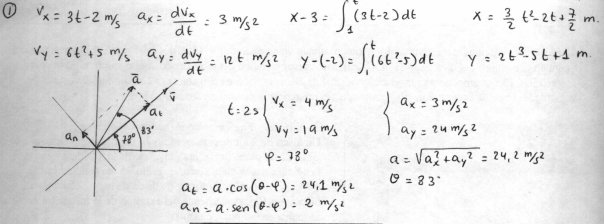 ① Vx = 3t-2 m/s ax = dVx/dt = 3 m/s² x-3 = ∫₁ᵗ (3t-2)dt x = 3/2 t²-2t+7/2 m.
Vy = 6t²+5 m/s ay = dVy/dt = 12t m/s² y-(-2) = ∫₁ᵗ (6t²-5)dt y = 2t³-5t+1 m.
ā
v̄
at
an
78°
83°
t=2s Vx = 4 m/s ax = 3 m/s²
Vy = 19 m/s ay = 24 m/s²
φ = 78° a = √ax²+ay² = 24,2 m/s²
θ = 83°
at = a·cos(θ-φ) = 24,1 m/s²
an = a·sen(θ-φ) = 2 m/s²